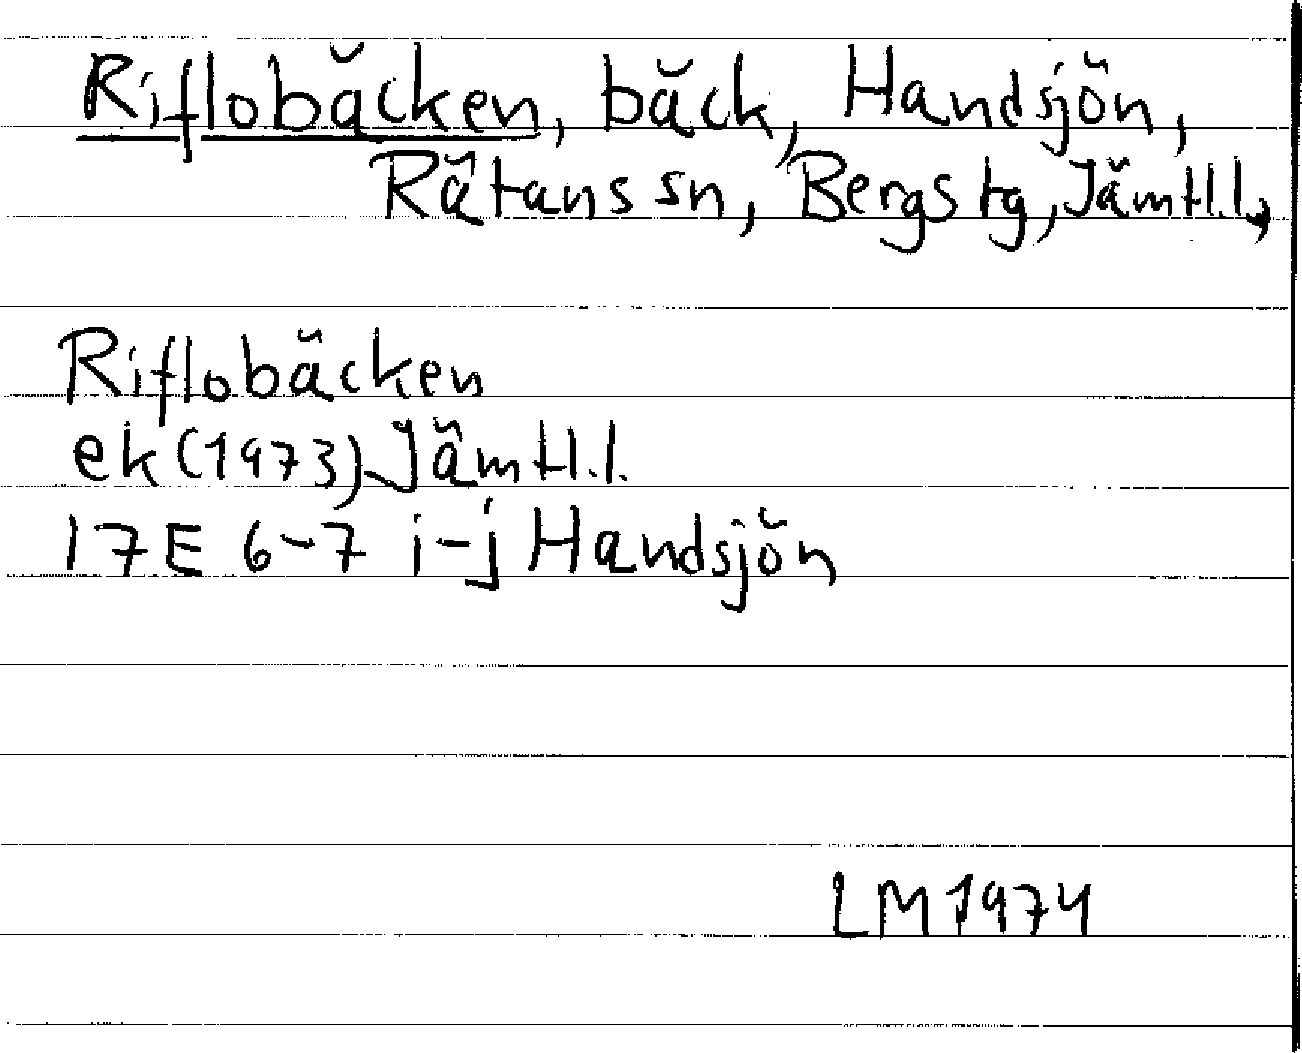 Riflobäcken, bäck, Handsjön,
Rätans sn, Bergs tg, Jämtl.l,
Riflobäcken
ek(1973) Jämtl.l.
17E 6-7 i-j Handsjön
LM 1974